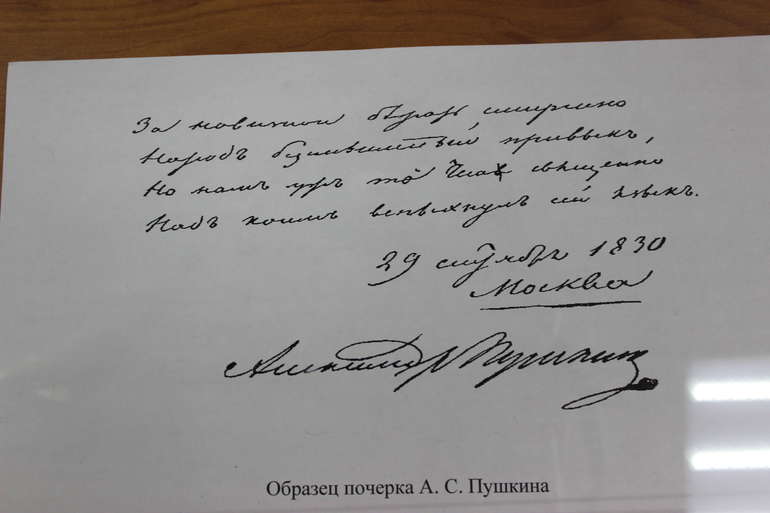 За новизной бѣжать смиренно
Народъ безсмысленный привыкъ,
Но намъ ужъ то чело священно
Надъ коимъ вспыхнулъ сей языкъ.
29 сентября 1830
Москва
Александръ Пушкинъ
Образец почерка А. С. Пушкина